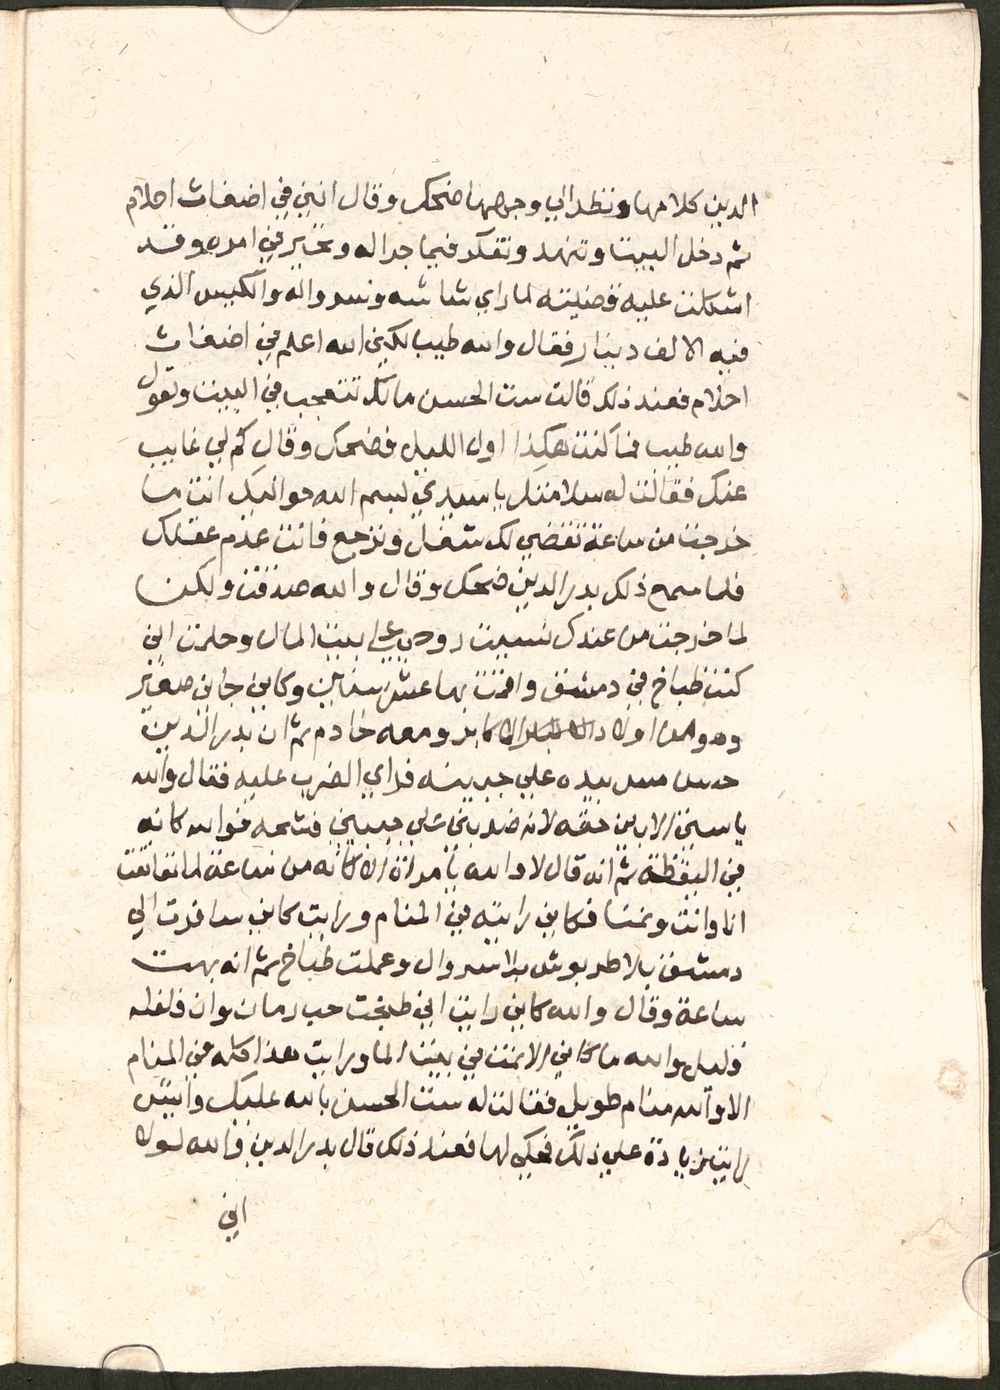 الدين كلامها ونظر الي وجهها ضحك وقال انني في اضغاث احلام
ثم دخل البيت وتنهد وتفكر فيما جرا له وتحير في امره وقد
اشكلت عليه قضيته لما راي شاشه وسرواله والكيس الذي
فيه الالف دينار فقال والله طيب لكني الله اعلم في اضغاث
احلام فعند ذلك قالت ست الحسن مالك تتعجب في البيت وتقول
والله طيب فما كنت هكذا اول الليل فضحك وقال كم لي غايب
عنك فقالت له سلامتك يا سيدي بسم الله حواليك انت ما
خرجت من ساعة تقضي لك شغل وترجع فانت عدم عقلك
فلما سمع ذلك بدر الدين ضحك وقال والله صدقت ولكن
لما خرجت من عندك نسيت روحي علي بيت المال وحلمت اني
كنت طباخ في دمشق واقمت بها عشر سنين وكاني جاني صغير
وهو من اولاد الاكابر ومعه خادم ثم ان بدر الدين
حسن مس بيده علي جبينه فراي الضرب عليه فقال والله
يا ستي الا بين حقه لانه ضربني علي جبيني فشجه فوالله كانه
في اليقظة ثم انه قال لا والله يا مراة الا كانه من ساعة لما تعانقت
انا وانت ونمنا فكاني رايته في المنام ورايت كاني سافرت الي
دمشق بلا طربوش بلا سروال وعملت طباخ ثم انه بهت
ساعة وقال والله كاني رايت اني طبخت حب رمان وان فلفله
قليل والله ما كاني الا نمت في بيت الما ورايت هذا كله في المنام
الا والله منام طويل فقالت له ست الحسن بالله عليك وايش
رايت زيادة علي ذلك فحكي لها فعند ذلك قال بدر الدين فالله لولا
اني